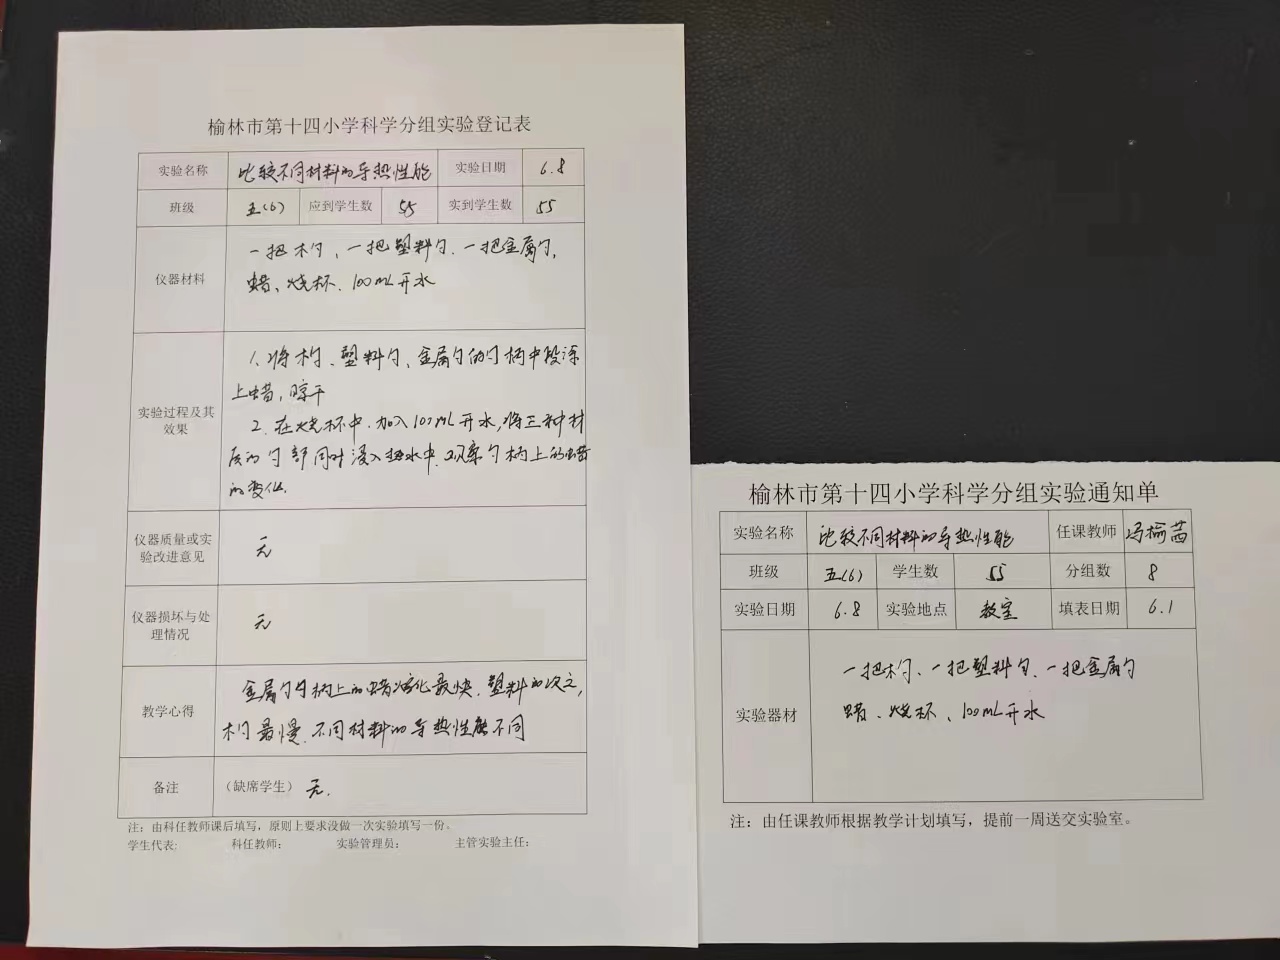 榆林市第十四小学科学分组实验登记表
实验名称 比较不同材料的导热性能 实验日期 6.8
班级 五(6) 应到学生数 55 实到学生数 55
仪器材料
一把木勺、一把塑料勺、一把金属勺,
蜡、烧杯、100mL开水
实验过程及其
效果
1、将木勺、塑料勺、金属勺的勺柄中段涂
上蜡,晾干
2、在烧杯中,加入100mL开水,将三种材
质的勺部同时浸入热水中,观察勺柄上的蜡
的变化.
仪器质量或实
验改进意见
无
仪器损坏与处
理情况
无
教学心得
金属勺勺柄上的蜡溶化最快,塑料的次之,
木勺最慢,不同材料的导热性能不同
备注 (缺席学生) 无.
注:由科任教师课后填写,原则上要求没做一次实验填写一份。
学生代表: 科任教师: 实验管理员: 主管实验主任:
榆林市第十四小学科学分组实验通知单
实验名称 比较不同材料的导热性能 任课教师 冯榆茜
班级 五(6) 学生数 55 分组数 8
实验日期 6.8 实验地点 教室 填表日期 6.1
实验器材
一把木勺、一把塑料勺、一把金属勺
蜡、烧杯、100mL开水
注:由任课教师根据教学计划填写,提前一周送交实验室。